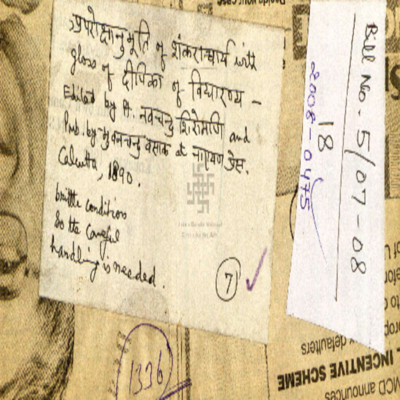 अपरोक्षानुभूति of शंकराचार्य with
gloss of दीपिका of विद्यारण्य -
Edited by P. नवचन्द्र शिरोमणि and
Pub. by भुवनचन्द्र वसाक at नारायण प्रेस.
Calcutta, 1890.
brittle condition
So the careful
handling is needed.
7
Bill No. 5/07-08
18
2008-0475
1336
INCENTIVE SCHEME
MCD announces
tax defaulters